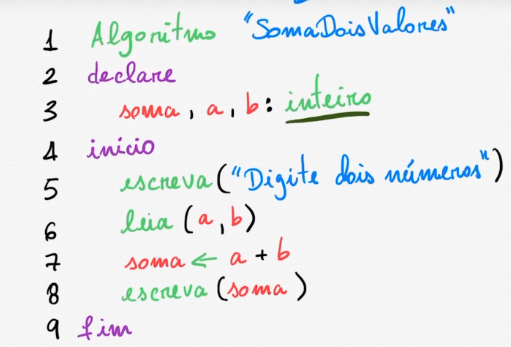 1 Algoritmo "SomaDoisValores"
2 declare
3 soma, a, b: inteiro
4 início
5 escreva("Digite dois números")
6 leia (a,b)
7 soma ← a + b
8 escreva (soma)
9 fim